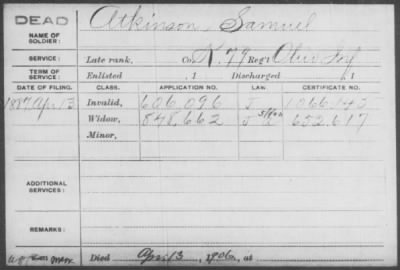 DEAD
NAME OF SOLDIER: Atkinson, Samuel
SERVICE: Late rank, Co. K. 79 Reg't Ohio Inf
TERM OF SERVICE: Enlisted , 1 Discharged , 1
DATE OF FILING. CLASS. APPLICATION NO. LAW. CERTIFICATE NO.
1887 Apr 13 Invalid, 606,096 J
Widow, 848,662 J 652,617
Minor,
ADDITIONAL SERVICES:
REMARKS:
Died April 3, 1906, at